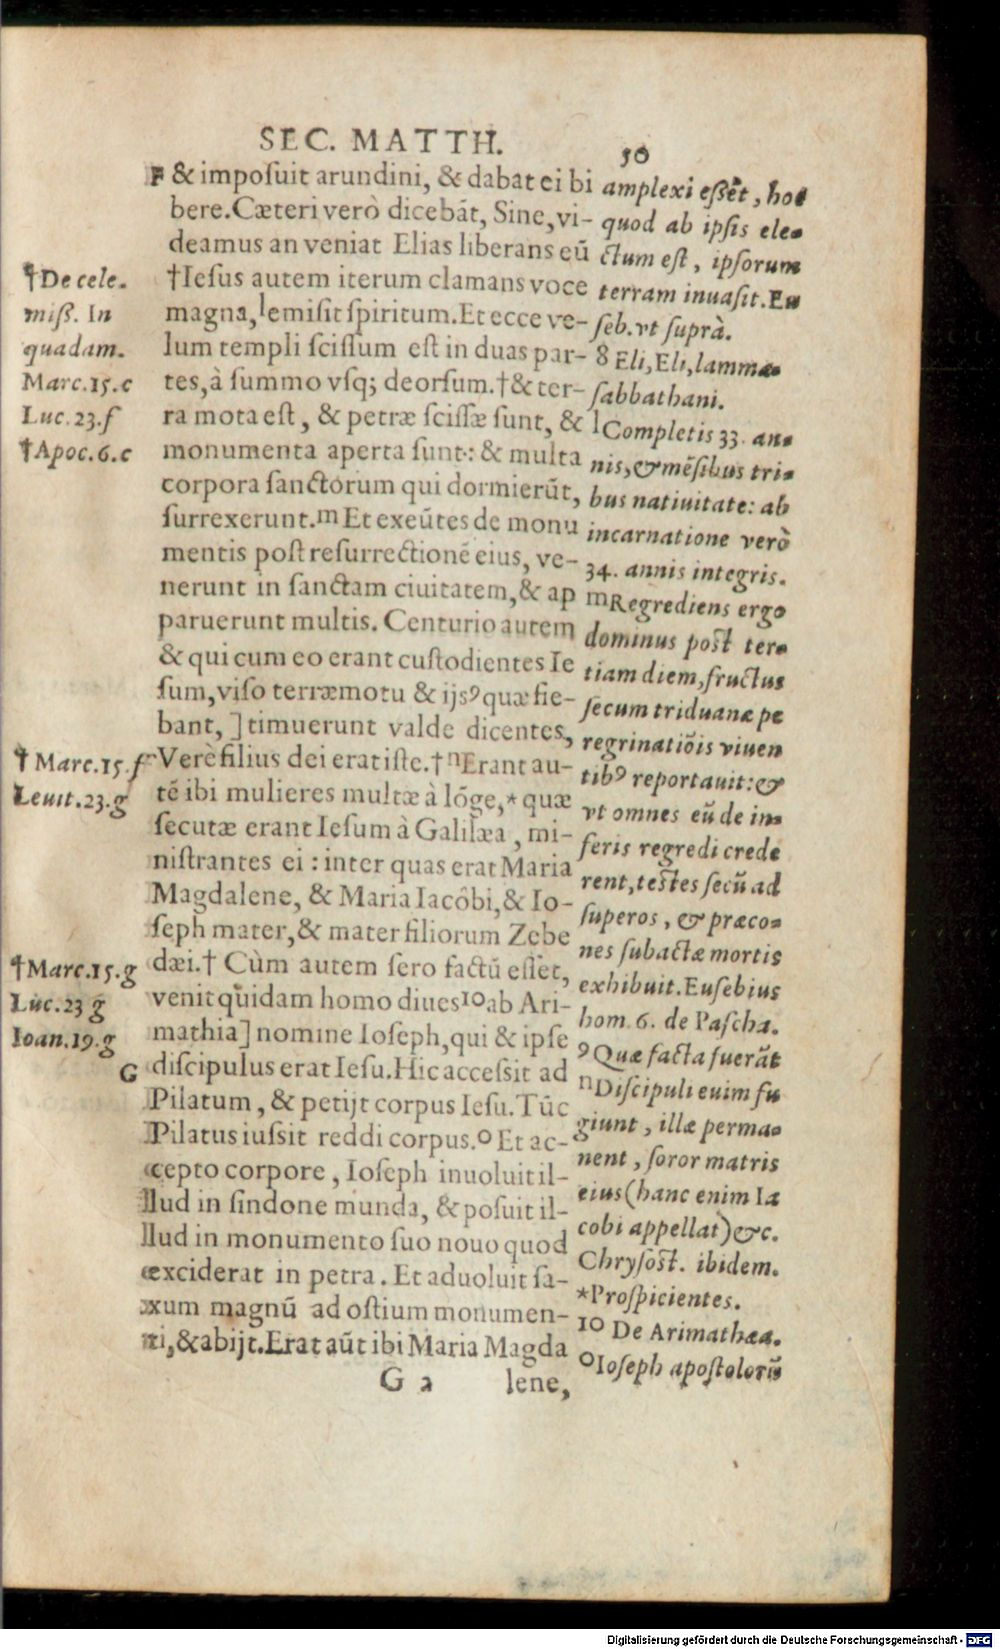 SEC. MATTH.
50
F & impoſuit arundini, & dabat ei bi
bere. Cæteri verò dicebãt, Sine, vi-
deamus an veniat Elias liberans eũ
†Ieſus autem iterum clamans voce
magna, lemiſit ſpiritum. Et ecce ve-
lum templi ſciſſum eſt in duas par-
tes, à ſummo vſq; deorſum. †& ter-
ra mota eſt, & petræ ſciſſæ ſunt, &
monumenta aperta ſunt: & multa
corpora ſanctorum qui dormierũt,
ſurrexerunt. mEt exeũtes de monu
mentis poſt reſurrectionẽ eius, ve-
nerunt in ſanctam ciuitatem, & ap
paruerunt multis. Centurio autem
& qui cum eo erant cuſtodientes Ie
ſum, viſo terræmotu & ijs⁹ quæ fie-
bant, ] timuerunt valde dicentes,
Verè filius dei erat iſte. † nErant au-
tẽ ibi mulieres multæ à lõge, * quæ
ſecutæ erant Ieſum à Galilæa, mi-
niſtrantes ei : inter quas erat Maria
Magdalene, & Maria Iacobi, & Io-
ſeph mater, & mater filiorum Zebe
dæi. † Cùm autem ſero factũ eſſet,
venit quidam homo diues 10 ab Ari-
mathia] nomine Ioſeph, qui & ipſe
G diſcipulus erat Ieſu. Hic acceſsit ad
Pilatum, & petijt corpus Ieſu. Tũc
Pilatus iuſsit reddi corpus. o Et ac-
cepto corpore, Ioſeph inuoluit il-
llud in ſindone munda, & poſuit il-
llud in monumento ſuo nouo quod
exciderat in petra. Et aduoluit ſa-
xum magnũ ad oſtium monumen-
ti, & abijt. Erat aũt ibi Maria Magda
G 2 lene,
†De cele.
miß. In
quadam.
Marc.15.c
Luc.23.f
†Apoc.6.c
† Marc.15.f
Leuit.23.g
†Marc.15.g
Luc.23 g
Ioan.19.g
amplexi eßẽt, hoc
quod ab ipſis ele-
ctum eſt, ipſorum
terram inuaſit. Eu
ſeb. vt ſuprà.
8 Eli, Eli, lamma-
ſabbathani.
l Completis 33. an-
nis, & mẽſibus tri-
bus natiuitate: ab
incarnatione verò
34. annis integris.
m Regrediens ergo
dominus poſt ter-
tiam diem, fructus
ſecum triduanæ pe
regrinatiõis viuen
tib⁹ reportauit: &
vt omnes eũ de in-
feris regredi crede
rent, teſtes ſecũ ad
ſuperos, & præco-
nes ſubactæ mortis
exhibuit. Euſebius
hom. 6. de Paſcha.
9 Quæ facta fuerãt
n Diſcipuli euim fu
giunt, illæ perma-
nent, ſoror matris
eius (hanc enim Ia
cobi appellat) &c.
Chryſoſt. ibidem.
*Proſpicientes.
10 De Arimathæa.
o Ioſeph apoſtolorũ
Digitalisierung gefördert durch die Deutsche Forschungsgemeinschaft - DFG